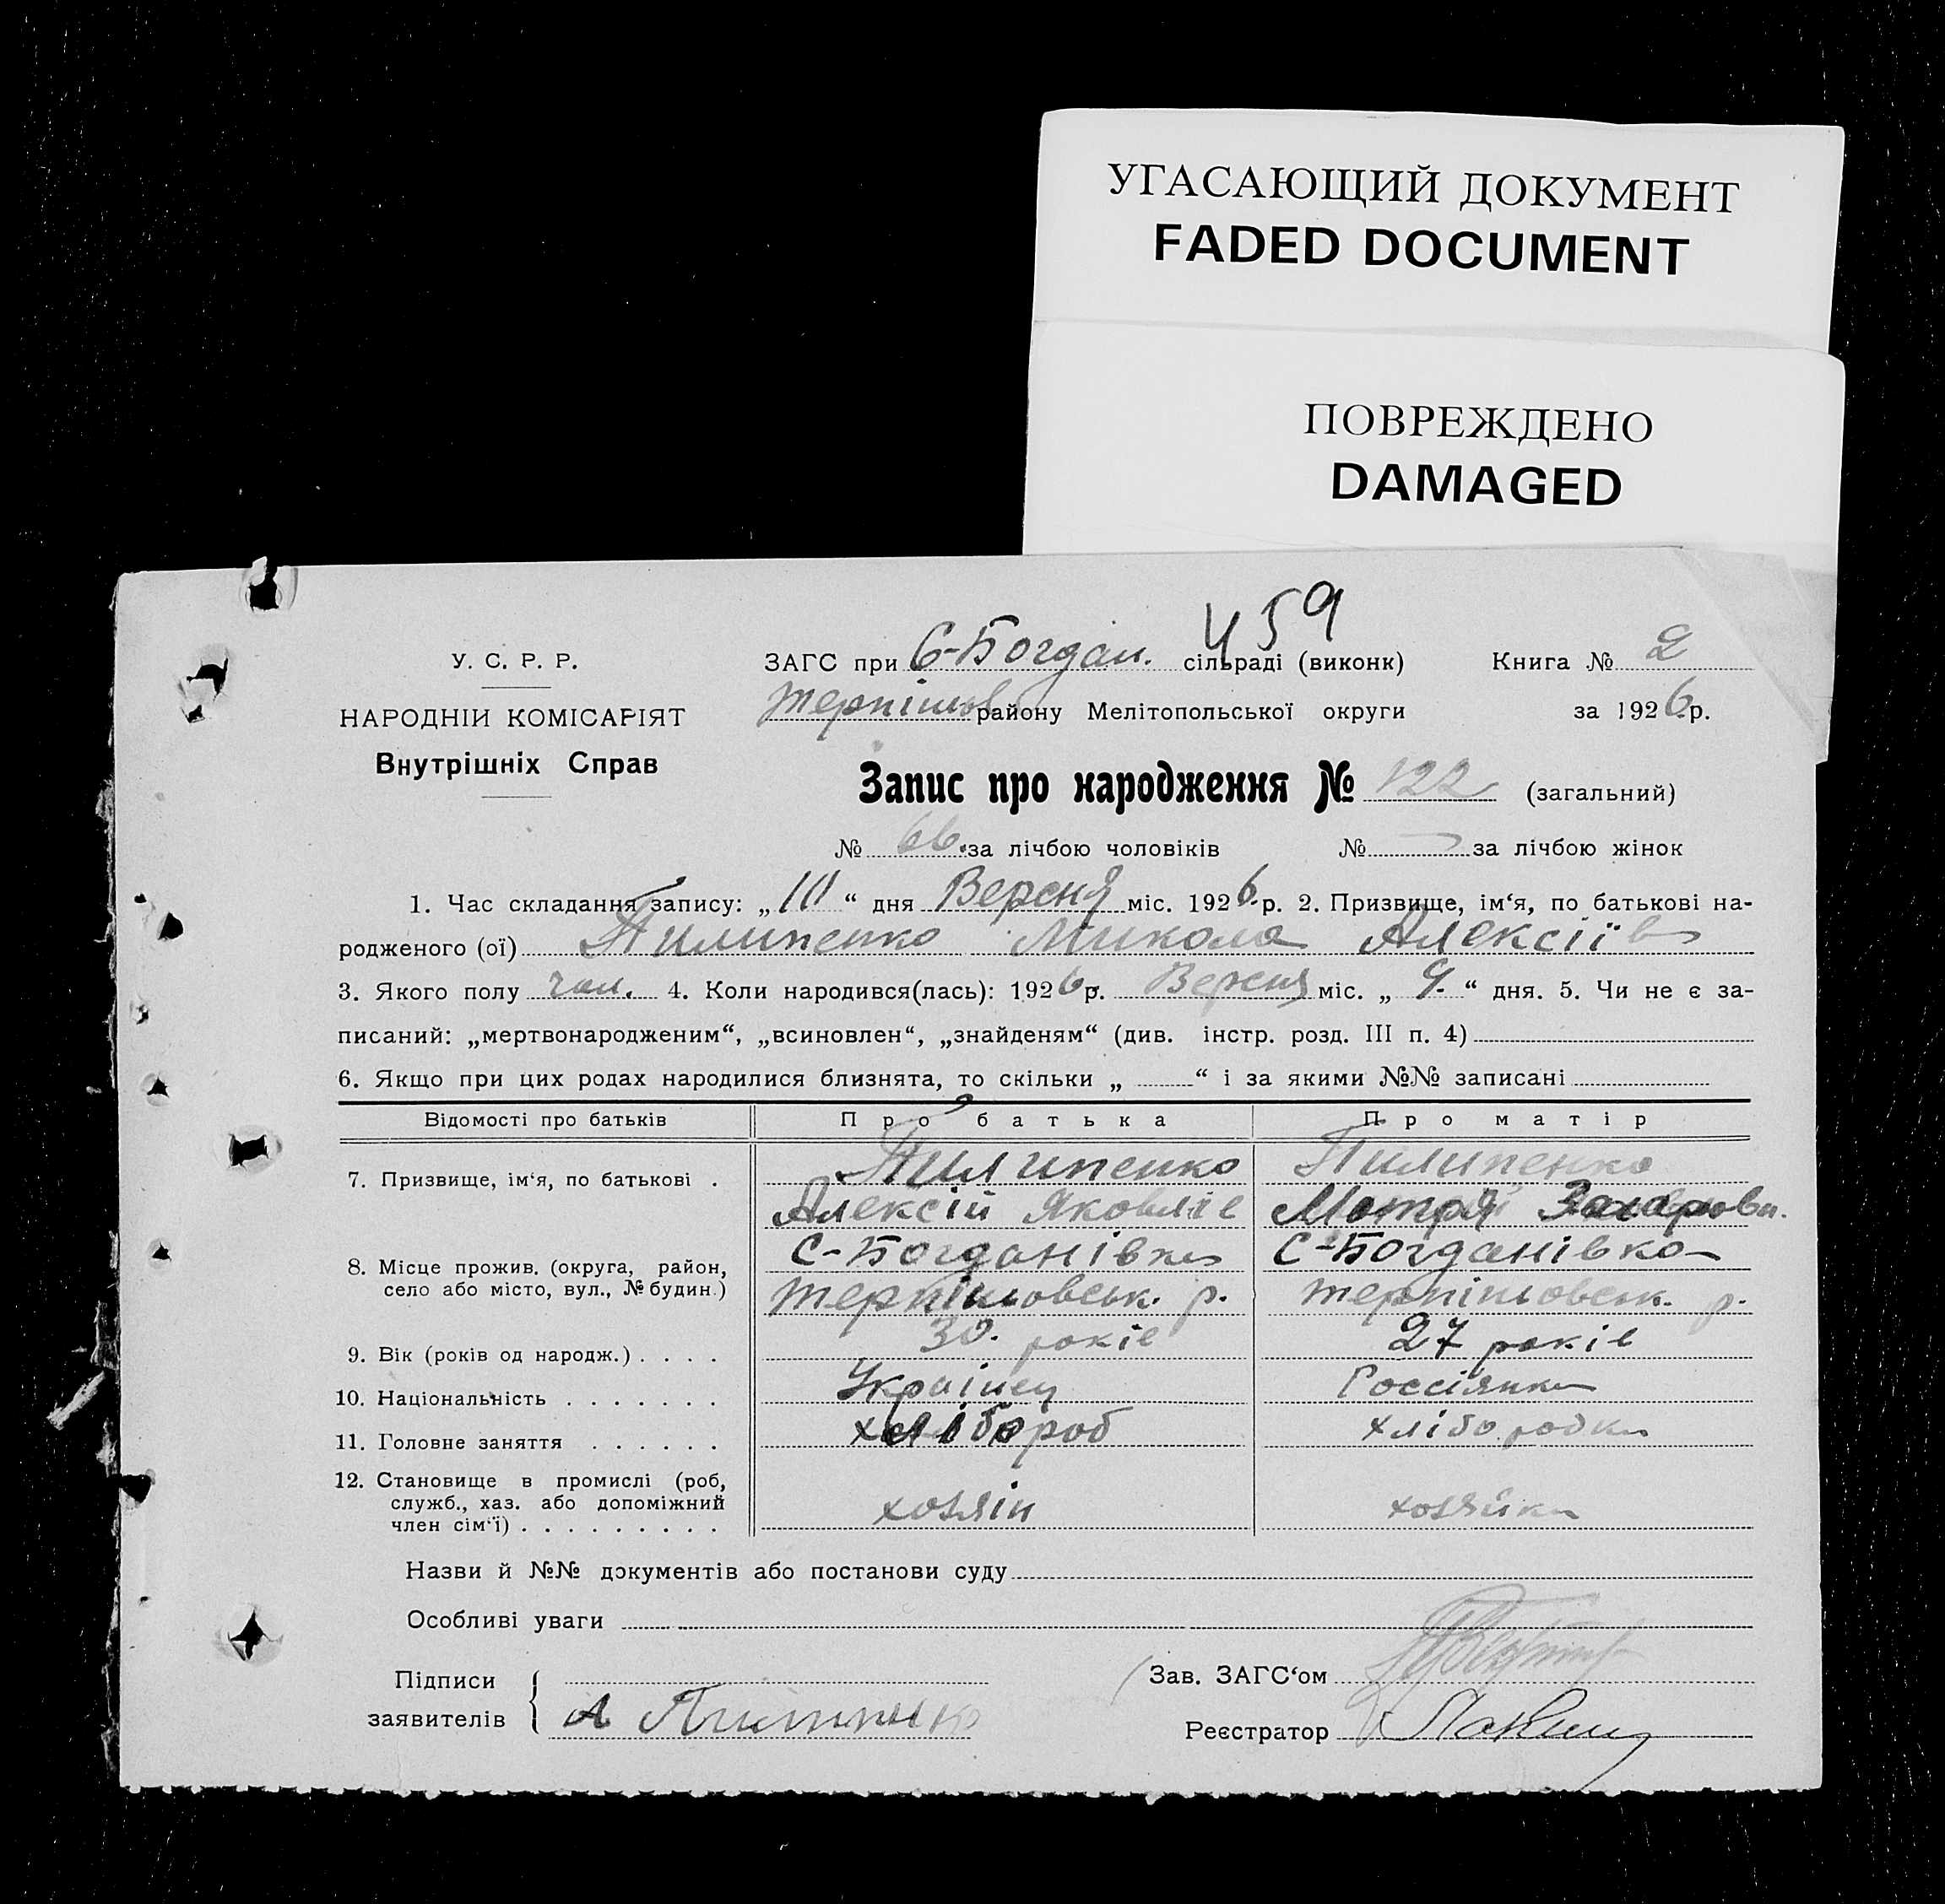 УГАСАЮЩИЙ ДОКУМЕНТ
FADED DOCUMENT
ПОВРЕЖДЕНО
DAMAGED
459
У. С. Р. Р.
НАРОДНІЙ КОМІСАРІЯТ
Внутрішніх Справ
ЗАГС при С-Богдан. сільраді (виконк) Книга № 2
Терпінов району Мелітопольської округи за 1926 р.
Запис про народження № 122 (загальний)
№ 66. за лічбою чоловіків № за лічбою жінок
1. Час складання запису: „ 10 “ дня Версня міс. 1926 р. 2. Призвище, ім‘я, по батькові на-
родженого (ої) Пилипенко Микола Алексіїв
3. Якого полу чол. 4. Коли народився(лась): 1926 р. Версня міс. „ 9. “ дня. 5. Чи не є за-
писаний: „мертвонародженим“, „всиновлен“, „знайденям“ (див. інстр. розд. III п. 4)
6. Якщо при цих родах народилися близнята, то скільки „ “ і за якими №№ записані
Відомості про батьків Про батька Про матір
7. Призвище, ім‘я, по батькові . Пилипенко Пилипенко
Алексій Яковлів Мотря Захаровн.
8. Місце прожив. (округа, район, С-Богданівка С-Богданівка
село або місто, вул., № будин.) Терпіновськ. р. Терпіновськ. р.
9. Вік (років од народж.) . . . . 30. років 27 років
10. Національність . . . . . . . Українец Россіянка
11. Головне заняття . . . . . . хлібороб хліборобка
12. Становище в промислі (роб,
служб., хаз. або допоміжний хозяін хозяйка
член сім‘ї) . . . . . . . . .
Назви й №№ документів або постанови суду
Особливі уваги
Підписи Зав. ЗАГС‘ом
заявителів А Пилипенко
Реєстратор